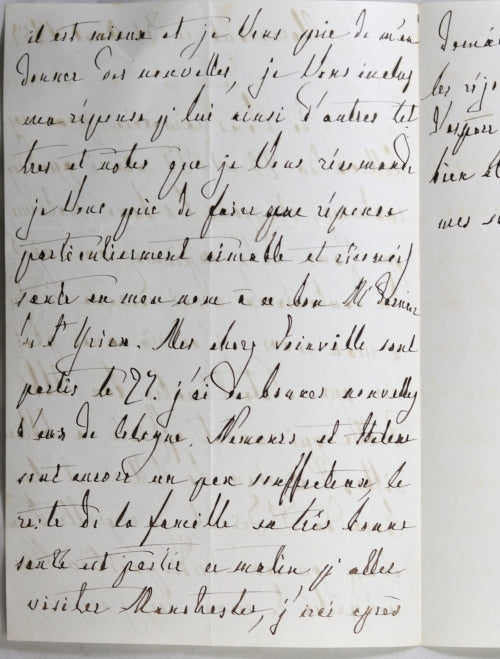 il est mieux et je Vous prie de m'en
donner des nouvelles, je Vous inclus
ma réponse p lui ainsi d'autres let
tres et notes que je Vous recommande
je Vous prie de faire une réponse
particulièrement aimable et reconnais
sante en mon nom à ce bon Mr
à St Yrieix. Mes chers Joinville sont
partis le 27. j'ai de bonnes nouvelles
d'eux de Cologne. Nemours et Helene
sont encore un peu souffreteux, le
reste de la famille en très bonne
santé est partie ce matin p aller
visiter Manchester, j'irai après
les réjo
J'espère
bien et
mes se